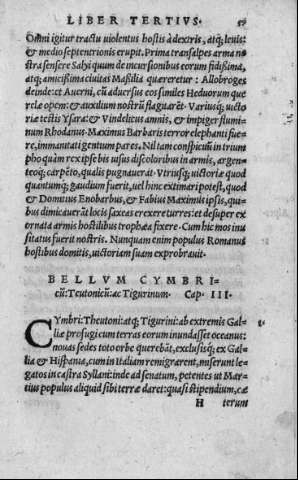 LIBER TERTIVS.
Omni igitur tractu violentus hostis à dextris, atq; leuis:
& medio septentrionis erupit. Prima transalpes arma no
stra sensere Salyi quum de incursionibus eorum fidissima,
atq; amicissima ciuitas Massilia quæreretur: Allobroges
deinde: et Auerni, cũ aduersus eos similes Heduorum que
relæ opem: & auxilium nostrũ flagitarēt. Variusq; victo
riæ testis Ysara: & Vindelicus amnis, & impiger flumi
num Rhodanus. Maximus Barbaris terror elephanti fue
re, immanitati gentium pares. Nil tam conspicuũ in trium
pho quàm rex ipse bis usus discoloribus in armis, argen-
teoq; carpēto, qualis pugnauerat. Vtriusq; victoriæ quod
quantumq; gaudium fuerit, uel hinc extimari potest, quod
& Domitius Enobarbus, & Fabius Maximus ipsis, qui-
bus dimicauerãt locis saxeas erexere turres: et desuper ex
ornata armis hostilibus trophæa fixere. Cum hic mos inu
sitatus fuerit nostris. Nunquam enim populus Romanus
hostibus domitis, uictoriam suam exprobrauit.
BELLVM CYMBRI-
cũ: Teutonicũ: ac Tigurinum. Cap. III.
CYmbri: Theutoni: atq; Tigurini: ab extremis Gal-
liæ profugi cum terras eorum inundasset oceanus:
nouas sedes toto orbe querebãt, exclusiq; ex Gal
lia & Hispania, cum in Italiam remigrarent, miserunt le-
gatos in castra Syllani: inde ad senatum, petentes ut Mar-
tius populus aliquid sibi terræ daret: quasi stipendium, cæ
H terum